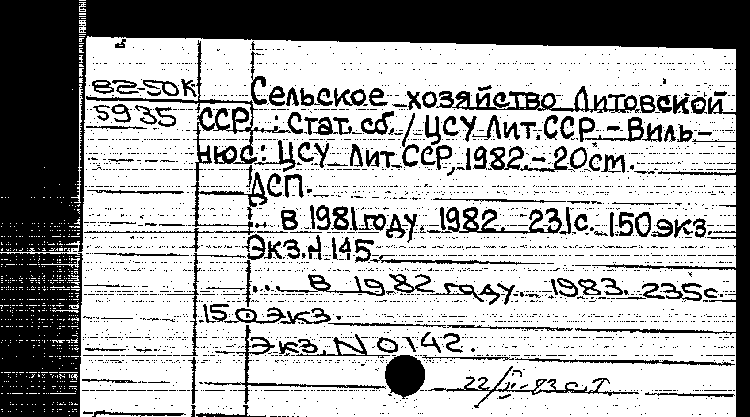 82-50К Сельское хозяйство Литовской
5935 ССР...: Стат. сб. / ЦСУ Лит.ССР. – Виль-
нюс: ЦСУ Лит.ССР, 1982. – 20 ст.
ДСП.
... в 1981 году. 1982. 231 с. 150 экз.
Экз.N 145.
... В 1982 году. 1983. 235 с.
150 экз.
Экз. N 0142.